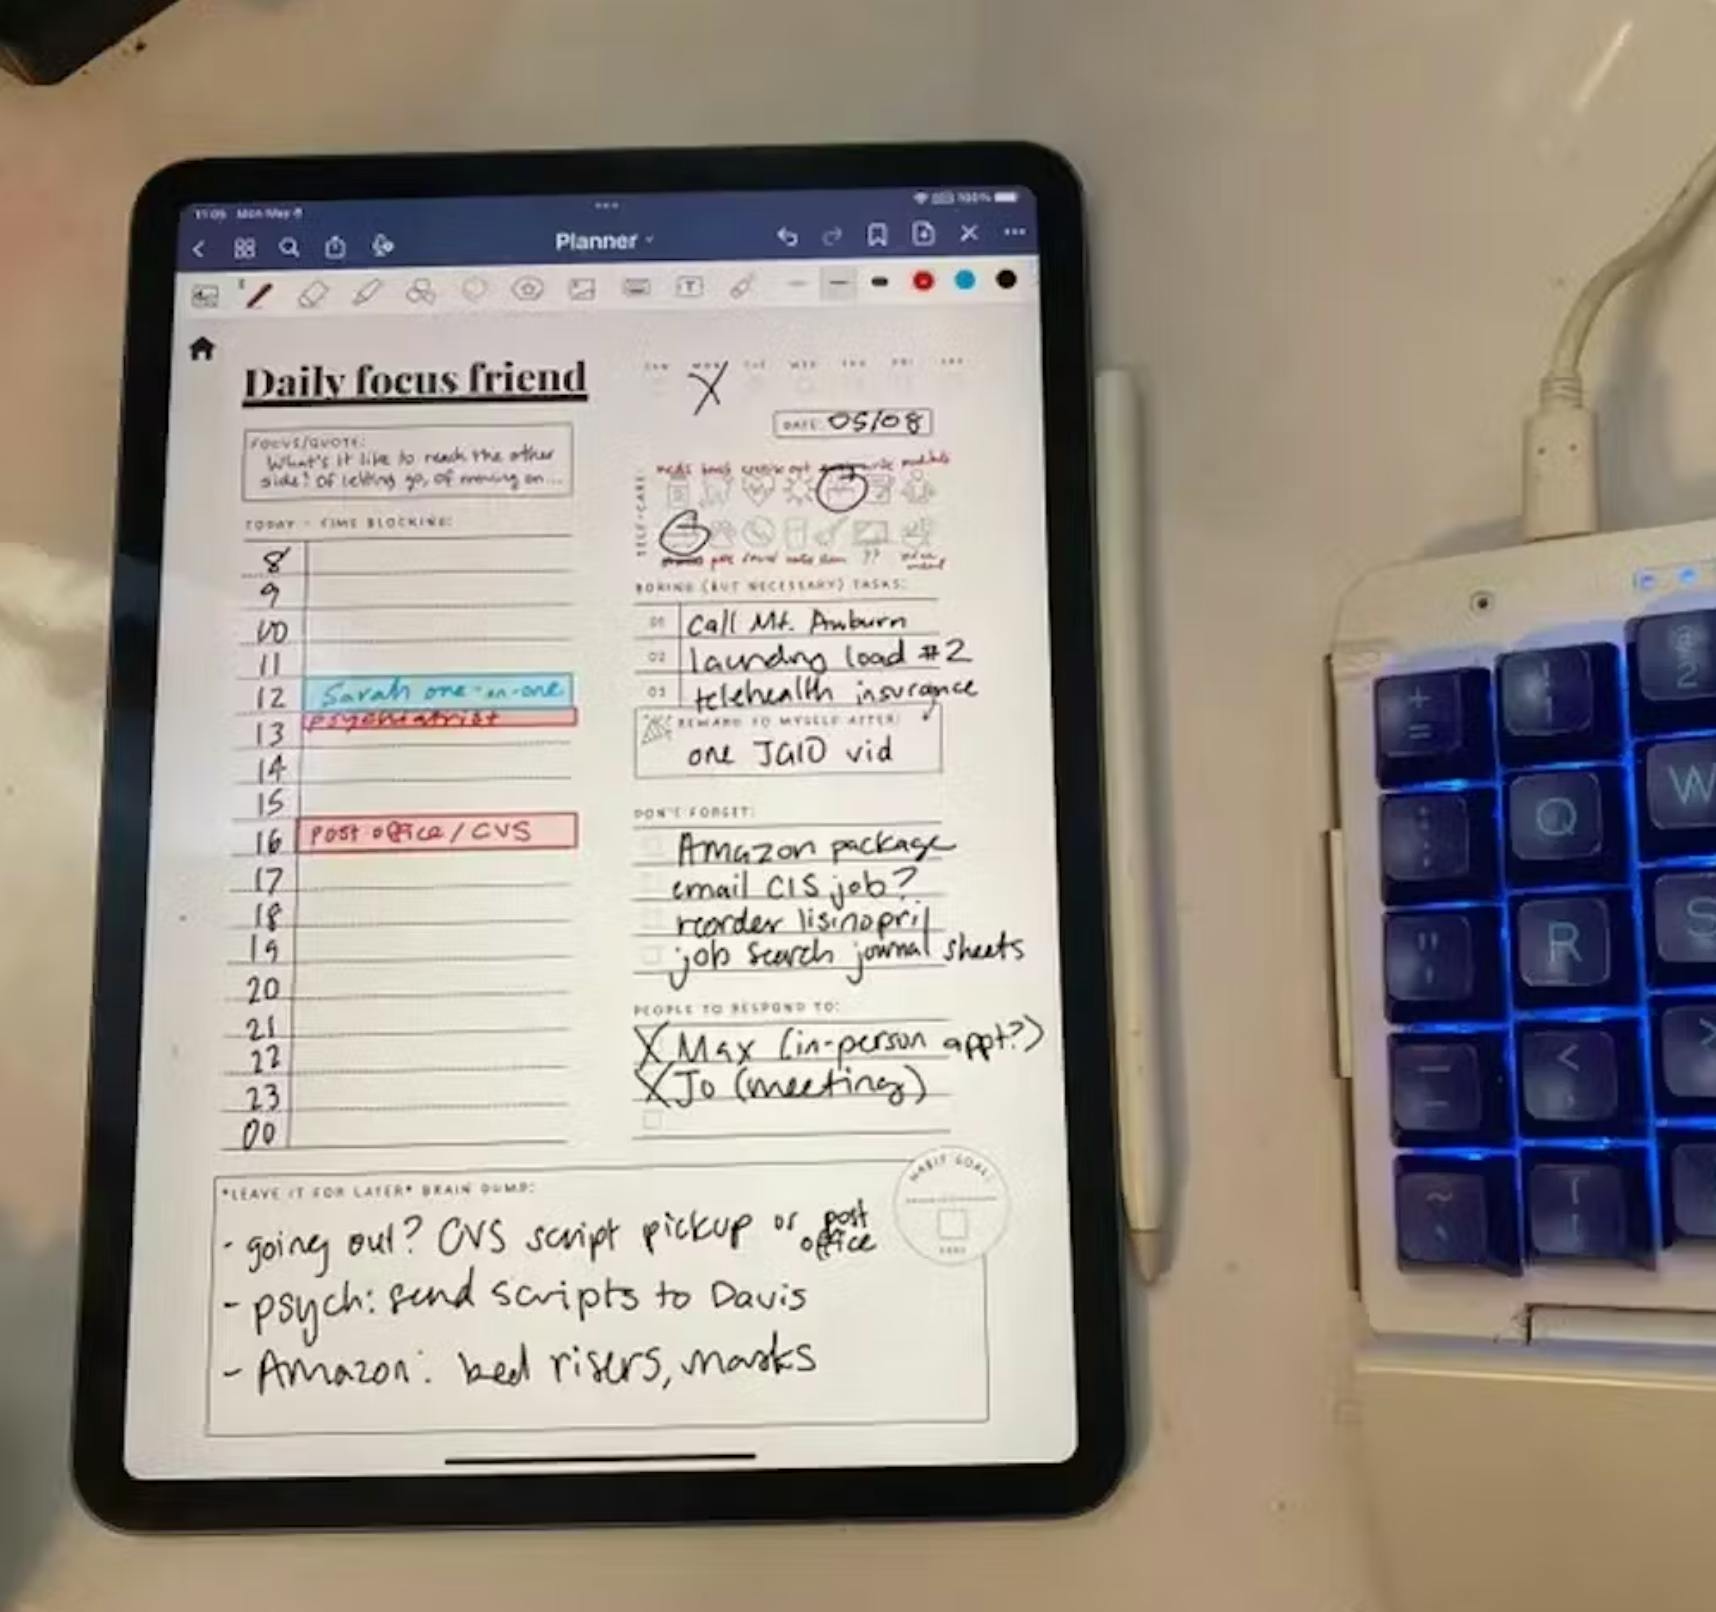 11:05 Mon May 8
100%
Planner
Daily focus friend
SUN MON TUE WED THU FRI SAT
X
DATE: 05/08
FOCUS/QUOTE:
What's it like to reach the other
side? Of letting go, of moving on...
SELF-CARE
meds
pets
??
TODAY - TIME BLOCKING:
8
9
10
11
12 Sarah one-on-one
psychiatrist
13
14
15
16 post office / CVS
17
18
19
20
21
22
23
00
BORING (BUT NECESSARY) TASKS:
01 Call Mt. Auburn
02 laundry load #2
03 telehealth insurance
REWARD TO MYSELF AFTER:
one JGID vid
DON'T FORGET:
Amazon package
email CIS job?
reorder lisinopril
job search journal sheets
PEOPLE TO RESPOND TO:
X Max (in-person appt?)
X Jo (meeting)
*LEAVE IT FOR LATER* BRAIN DUMP:
- going out? CVS script pickup or post office
- psych: send scripts to Davis
- Amazon: bed risers, masks
HABIT GOAL:
+
=
!
1
@
2
Q
W
"
'
R
S
<
,
>
~